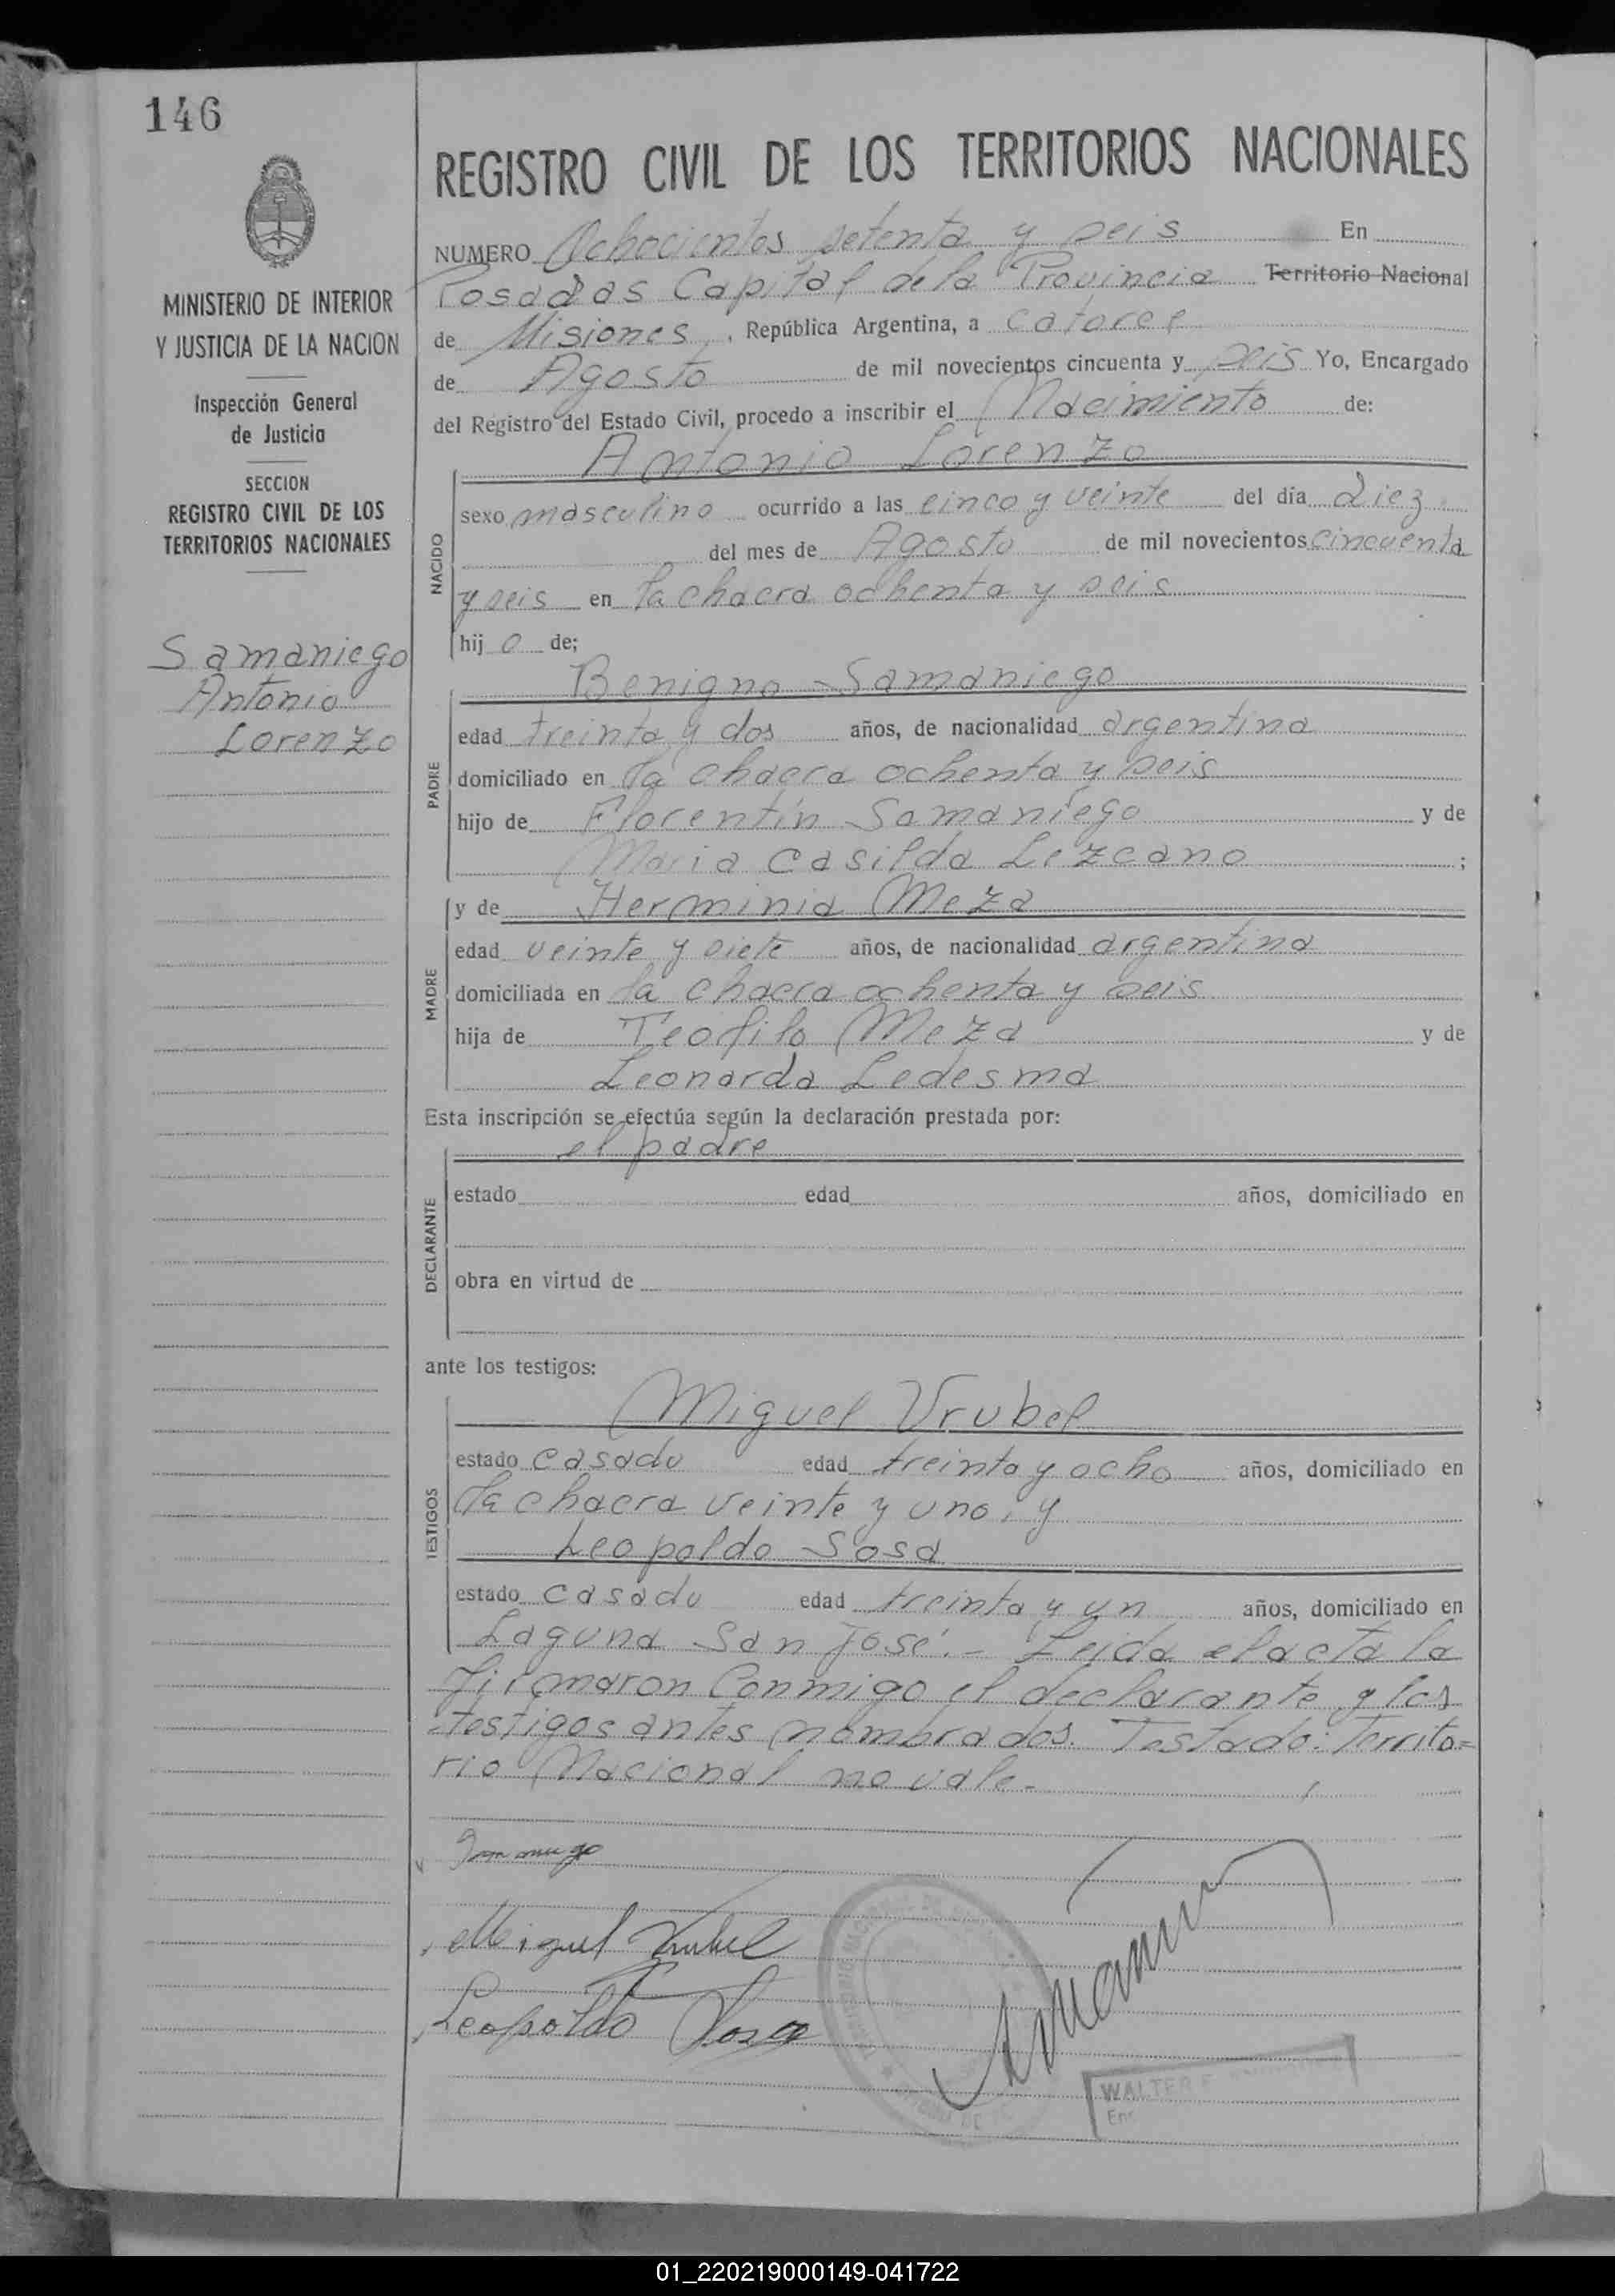 146
MINISTERIO DE INTERIOR
Y JUSTICIA DE LA NACION
Inspección General
de Justicia
SECCION
REGISTRO CIVIL DE LOS
TERRITORIOS NACIONALES
Samaniego
Antonio
Lorenzo
REGISTRO CIVIL DE LOS TERRITORIOS NACIONALES
NUMERO Ochocientos setenta y seis En
Posadas Capital de la Provincia Territorio Nacional
de Misiones, República Argentina, a catorce
de Agosto de mil novecientos cincuenta y seis Yo, Encargado
del Registro del Estado Civil, procedo a inscribir el Nacimiento de:
Antonio Lorenzo
NACIDO
sexo masculino ocurrido a las cinco y veinte del día diez
del mes de Agosto de mil novecientos cincuenta
y seis en la chacra ochenta y seis
hij o de;
Benigno Samaniego
PADRE
edad treinta y dos años, de nacionalidad argentina
domiciliado en la chacra ochenta y seis
hijo de Florentín Samaniego y de
Maria Casilda Lezcano ;
y de Herminia Meza
MADRE
edad veinte y siete años, de nacionalidad argentina
domiciliada en la chacra ochenta y seis
hija de Teofilo Meza y de
Leonarda Ledesma
Esta inscripción se efectúa según la declaración prestada por:
el padre
DECLARANTE
estado edad años, domiciliado en
obra en virtud de
ante los testigos:
Miguel Vrubel
TESTIGOS
estado casado edad treinta y ocho años, domiciliado en
la chacra veinte y uno, y
Leopoldo Sosa
estado casado edad treinta y un años, domiciliado en
Laguna San José.- Leida el acta la
firmaron conmigo el declarante y los
testigos antes nombrados. Testado: Territo=
rio Nacional no vale.-
Miguel Vrubel
Leopoldo Sosa
WALTER
01_220219000149-041722